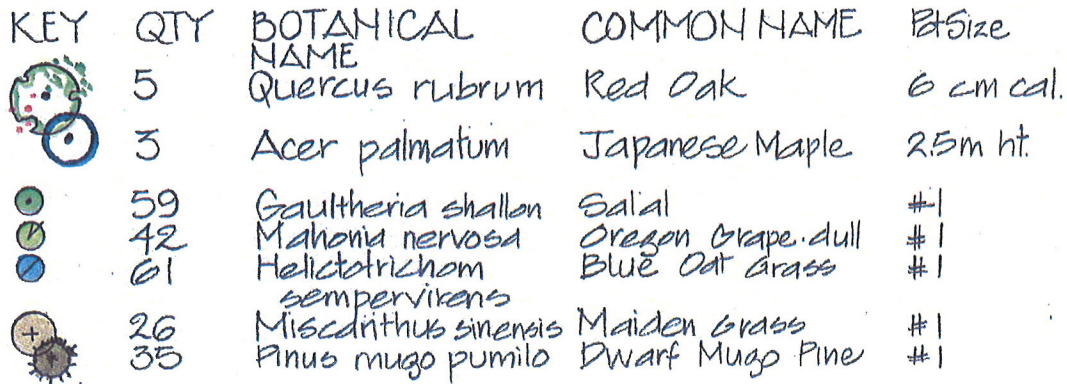 KEY QTY BOTANICAL NAME COMMON NAME Pot Size
5 Quercus rubrum Red Oak 6 cm cal.
3 Acer palmatum Japanese Maple 2.5m ht.
59 Gaultheria shallon Salal #1
42 Mahonia nervosa Oregon Grape·dull #1
61 Helictotrichom Blue Oat Grass #1
sempervirens
26 Miscanthus sinensis Maiden Grass #1
35 Pinus mugo pumilo Dwarf Mugo Pine #1